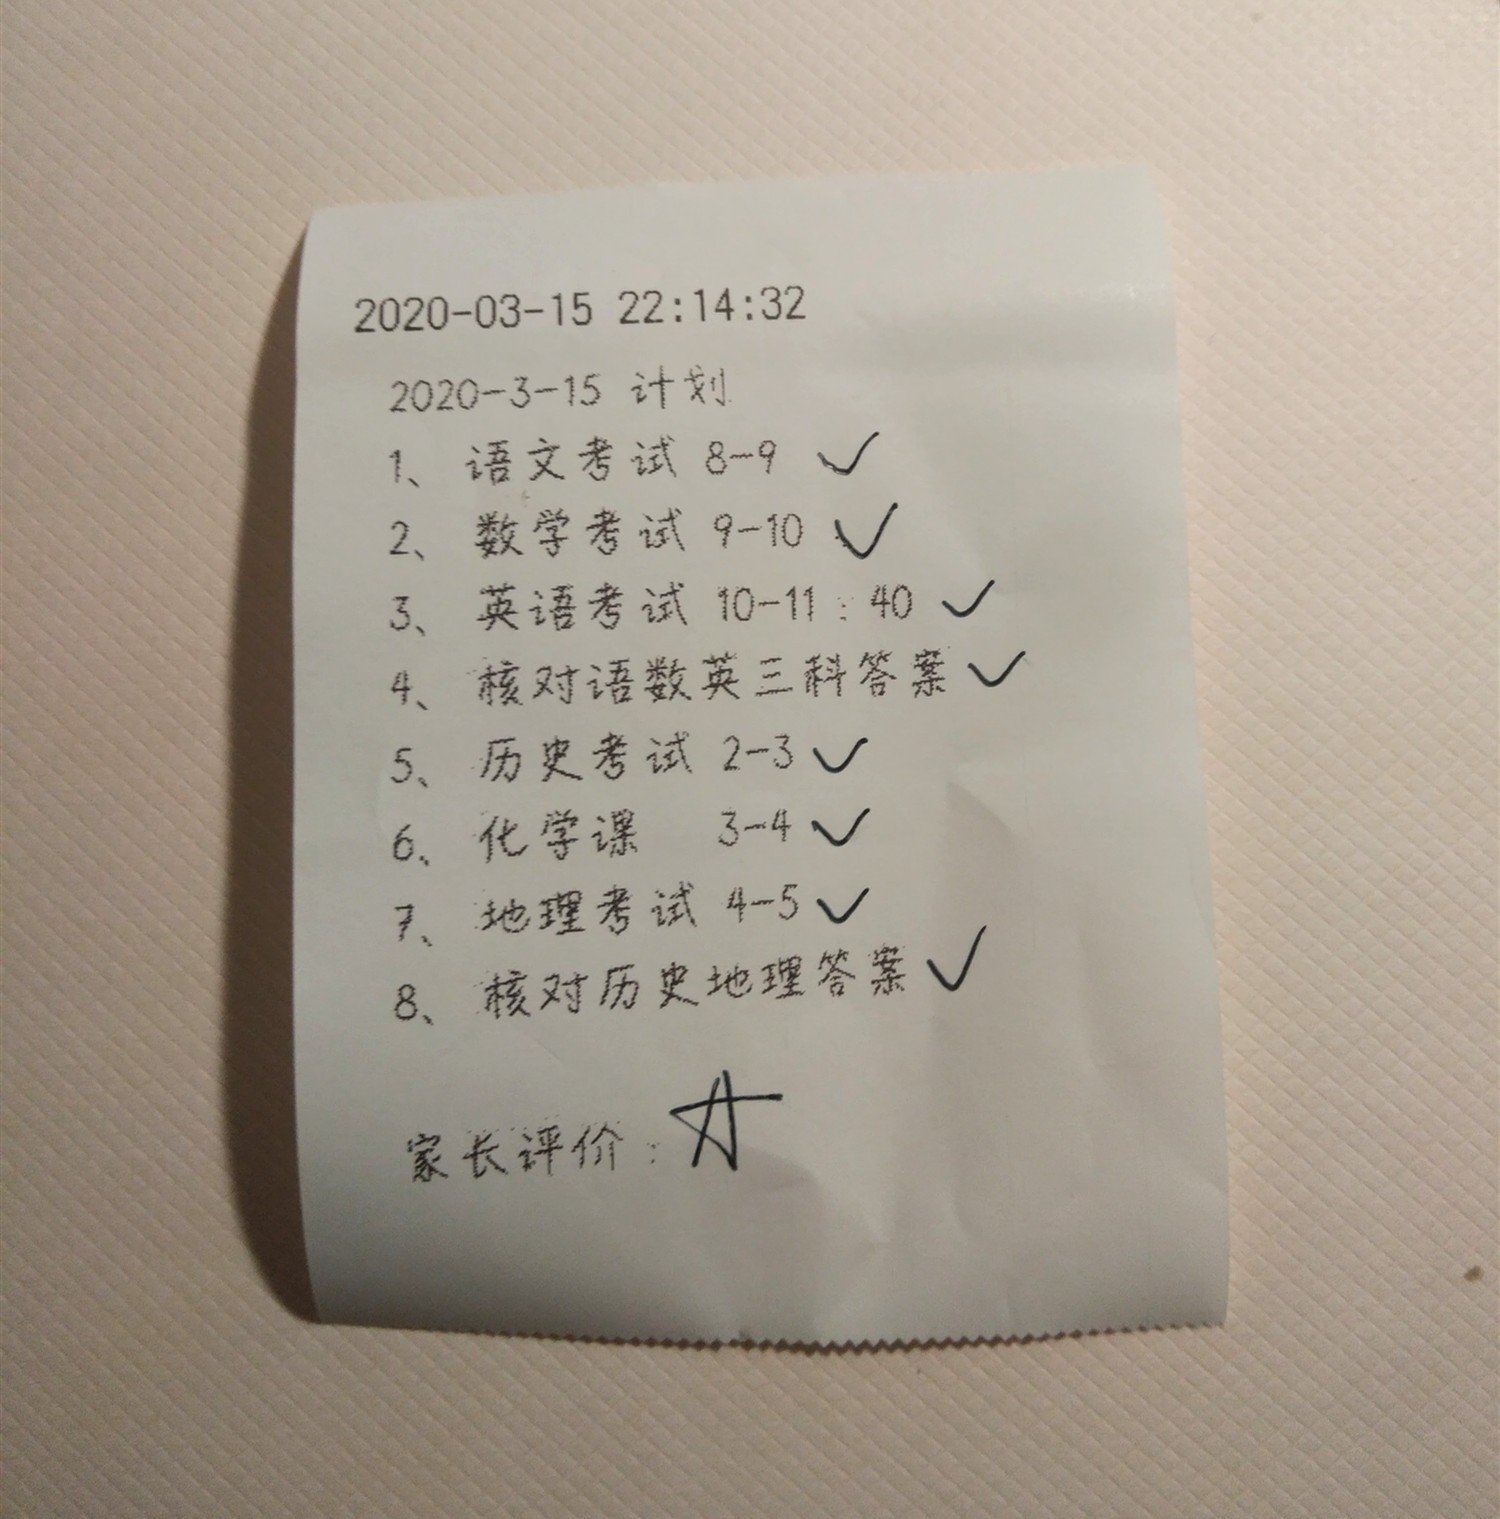 2020-03-15 22:14:32
2020-3-15 计划
1、 语文考试 8-9 ✓
2、 数学考试 9-10 ✓
3、 英语考试 10-11：40 ✓
4、 核对语数英三科答案 ✓
5、 历史考试 2-3 ✓
6、 化学课 3-4 ✓
7、 地理考试 4-5 ✓
8、 核对历史地理答案 ✓
家长评价：☆